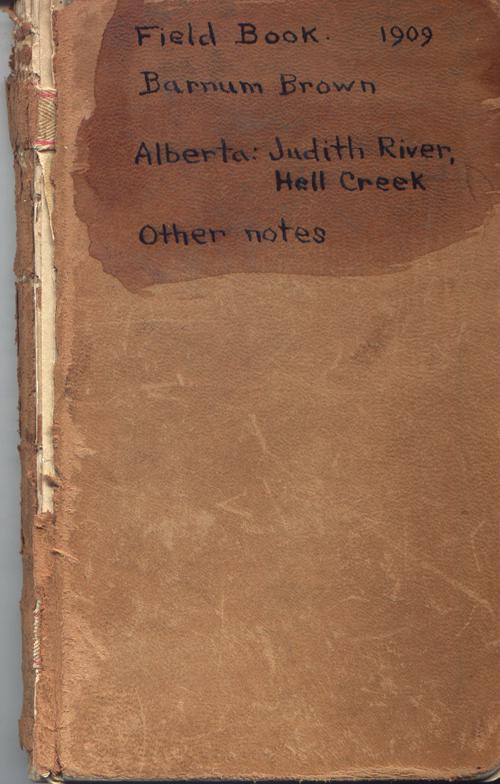 Field Book. 1909
Barnum Brown
Alberta: Judith River,
Hell Creek
Other notes